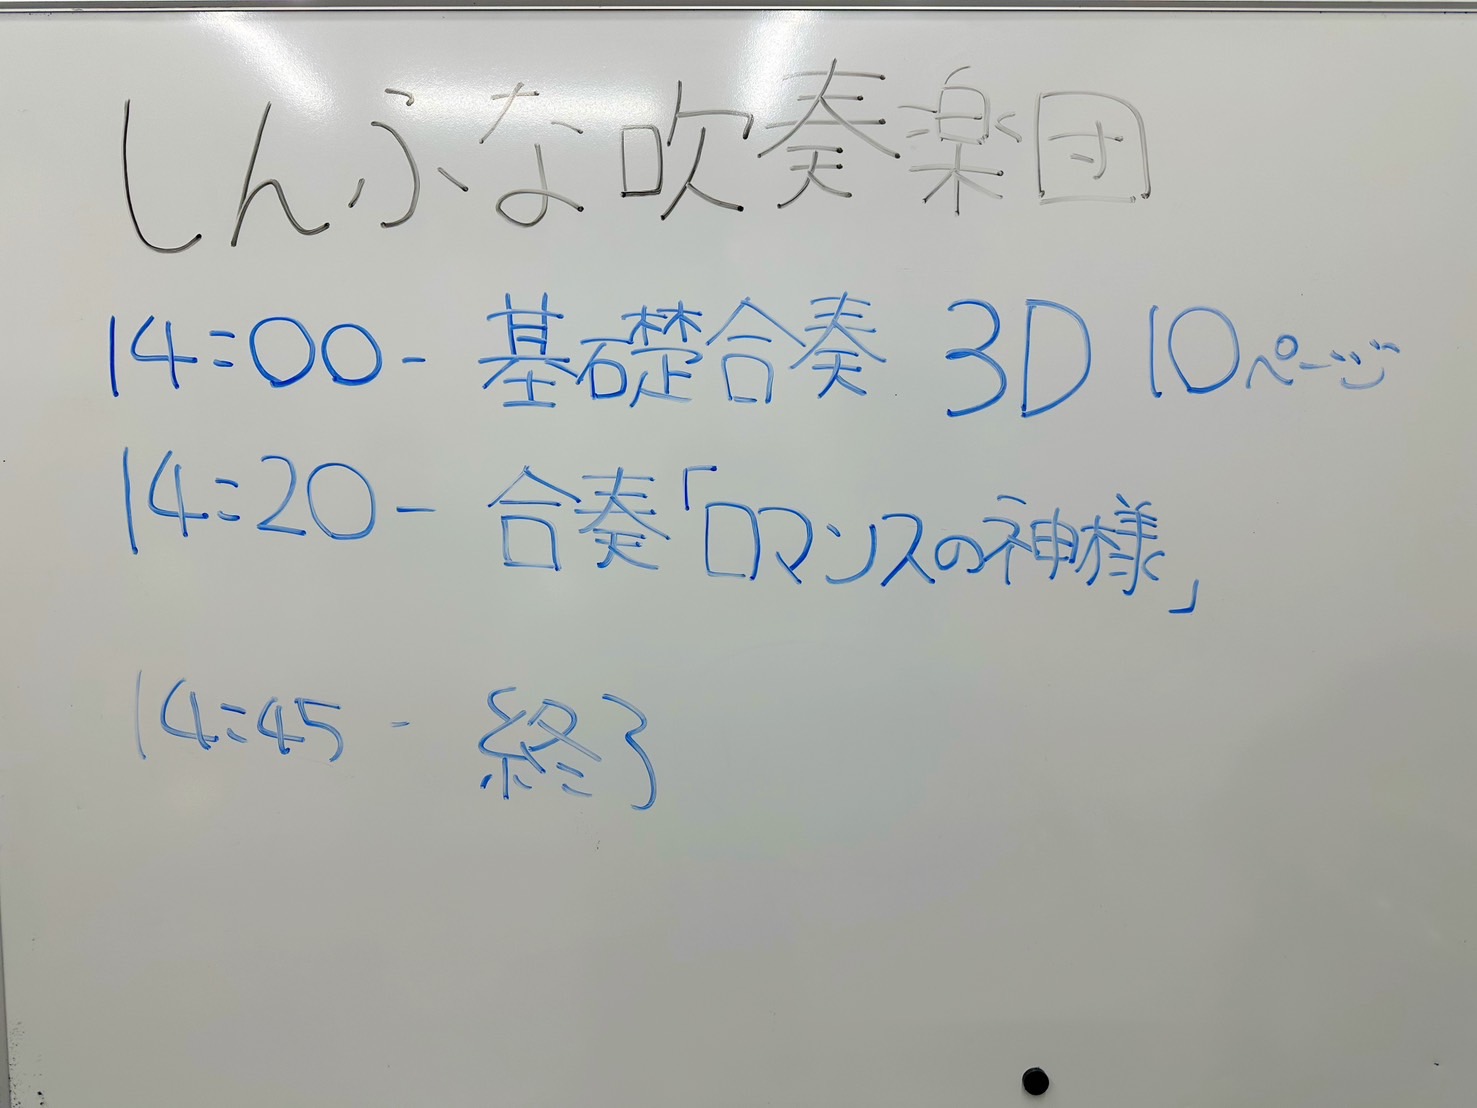 しんふな吹奏楽団
14:00- 基礎合奏 3D 10ページ
14:20- 合奏「ロマンスの神様」
14:45 - 終了